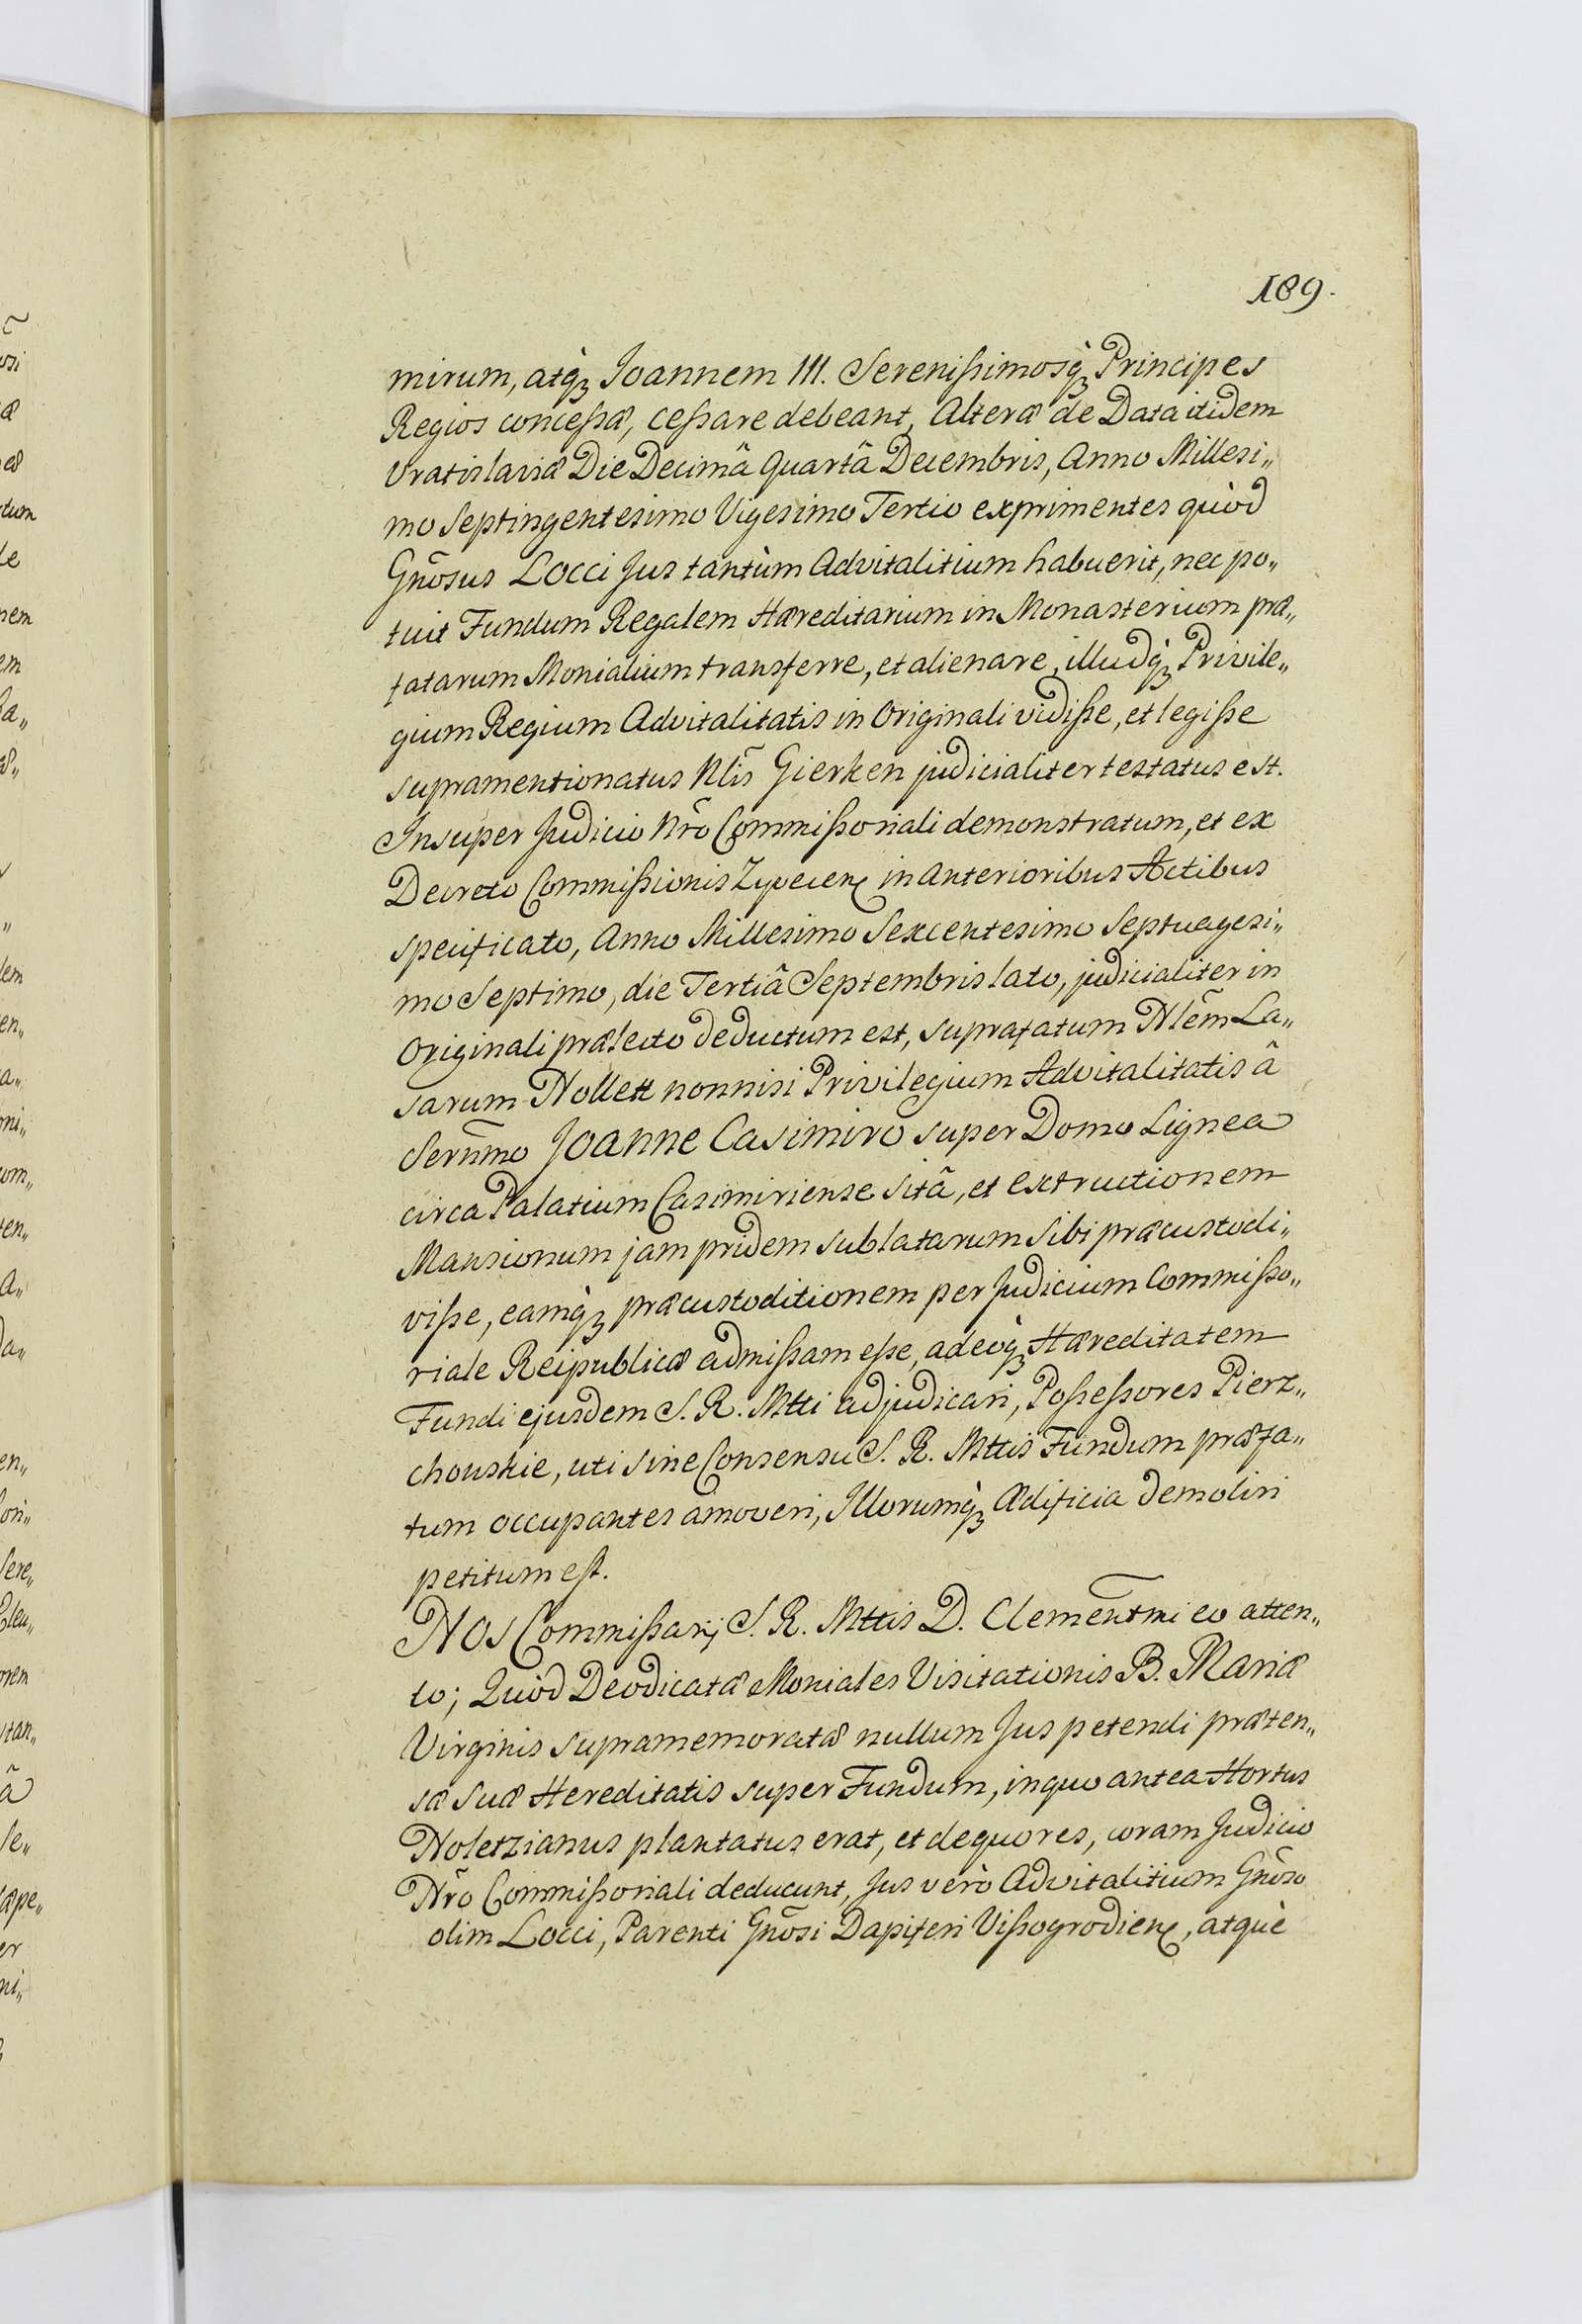 189.
mirum, atq̀ꝫ Joannem III. Serenißimosq̀ꝫ Principes
Regios conceßæ, ceßare debeant, Alteræ de Data itidem
Vratislaviæ Die Decimâ Quartâ Decembris, Anno Millesi„
mo Septingentesimo Vigesimo Tertio exprimentes quòd
Gnõsus Locci Jus tantùm Advitalitium habuerit, nec po„
tuit Fundum Regalem Hæreditarium in Monasterium præ„
fatarum Monialium transferre, et alienare, illudq̀ꝫ Privile„
gium Regium Advitalitatis in Originali vidiße, et legiße
supramentionatus Nlĩs Gierken judicialiter testatus est.
Insuper Judicio Nrõ Commißoriali demonstratum, et ex
Decreto Commißionis Zyvecenꝭ in anterioribus Actibus
specificato, Anno Millesimo Sexcentesimo Septuagesi„
mo Septimo, die Tertiâ Septembris lato, judicialiter in
Originali prælecto deductum est, suprafatum Nlẽm La„
sarum Nollett nonnisi Privilegium Advitalitatis â
Serñmo Joanne Casimiro super Domo Lignea
circa Palatium Casimiriense sitâ, et extructionem
Mansionum jam pridem sublatarum sibi præcustodi„
viße, eamq̀ꝫ præcustoditionem per Judicium Commißo„
riale Reipublicæ admißam eße, adeoq̀ꝫ Hæreditatem
Fundi ejusdem S. R. Mtti adjudicari, Poßeßores Pierz„
chouskie, uti sine Consensu S. R. Mttis Fundum præfa„
tum occupantes amoveri, Illorumq̀ꝫ Ædificia demoliri
petitum est.
Nos Commißarij S. R. Mttis D. Clemen̄tmi eo atten„
to; Quòd Deodicatæ Moniales Visitationis B. Mariæ
Virginis supramemoratæ nullum Jus petendi præten„
sæ suæ Hereditatis super Fundum, in quo antea Hortus
Noletzianus plantatus erat, et de quo res, coram Judicio
Nrõ Commißoriali deducunt, Jus verò Advitalitium Gnõso
olim Locci, Parenti Gnõsi Dapiferi Vißogrodienꝭ, atquè